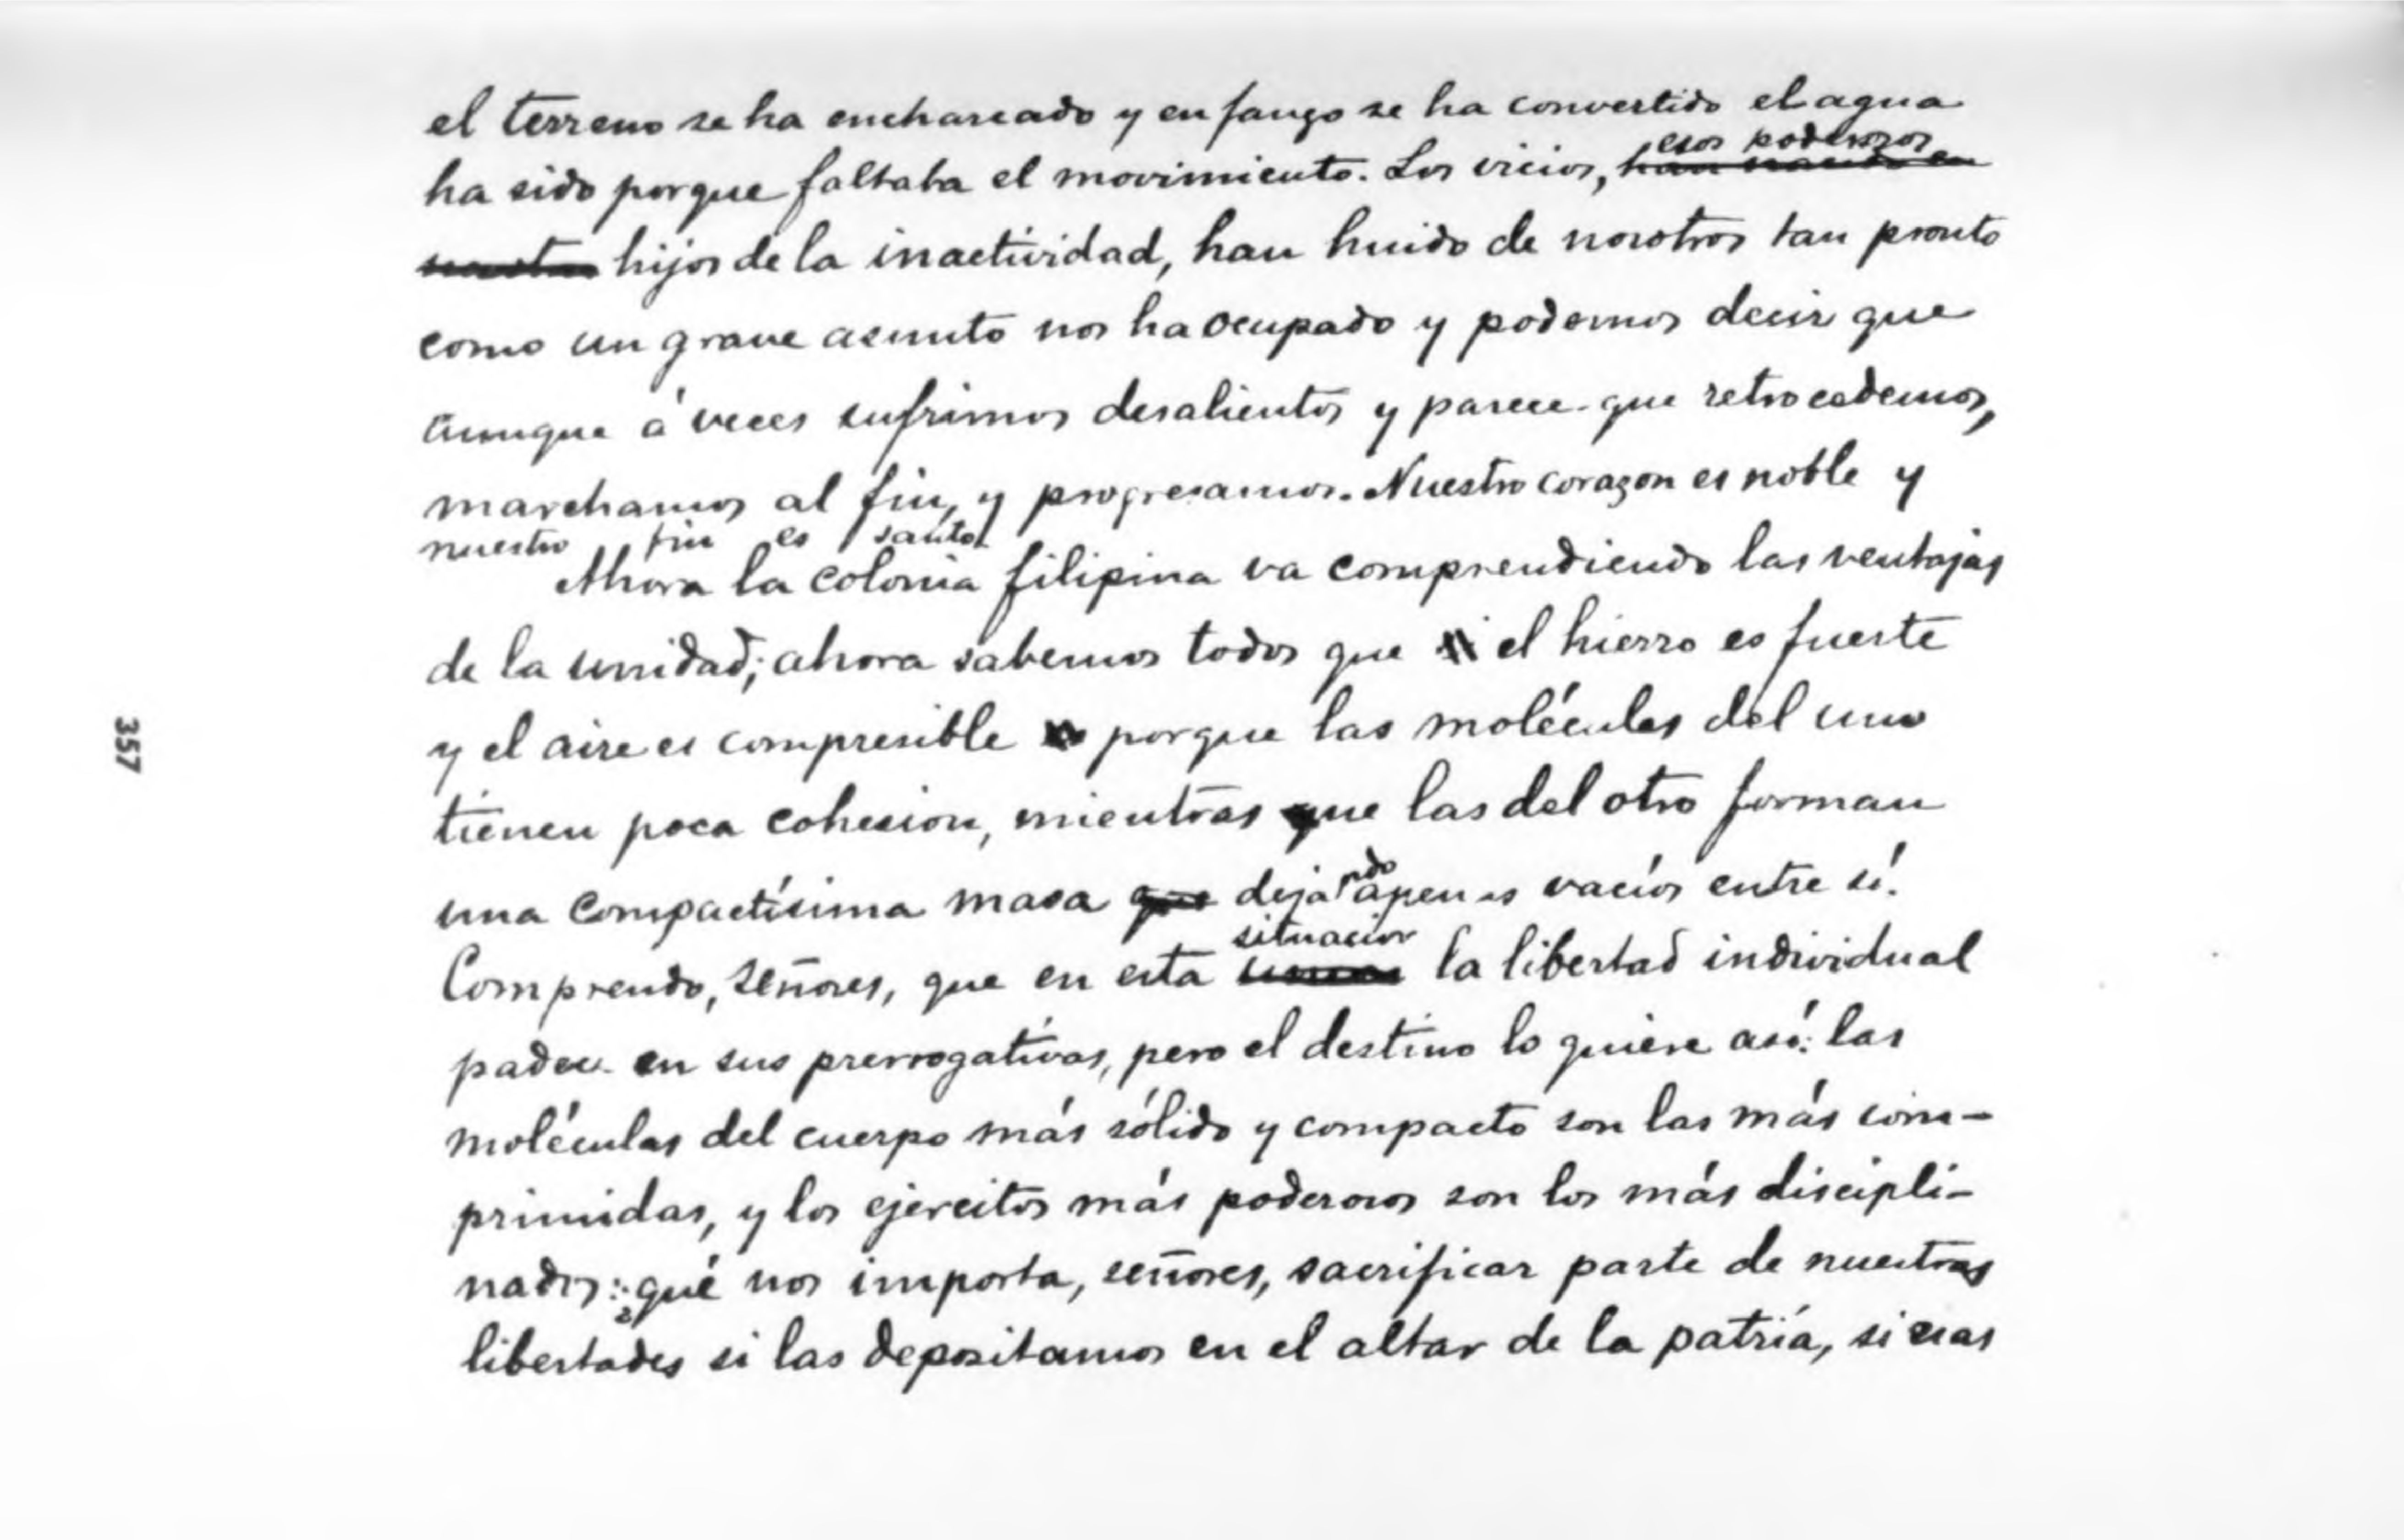 el terreno se ha encharcado y en fango se ha convertido el agua
ha sido porque faltaba el movimiento. Los vicios, esos poderosos
hijos de la inactividad, han huido de nosotros tan pronto
como un grave asunto nos ha ocupado y podemos decir que
aunque á veces sufrimos desalientos y parece que retrocedemos,
marchamos al fin, y progresamos. Nuestro corazon es noble y
nuestro fin es santo.
Ahora la colonia filipina va comprendiendo las ventajas
de la unidad; ahora sabemos todos que si el hierro es fuerte
y el aire es compresible porque las moléculas del uno
tienen poca cohesion, mientras que las del otro forman
una compactísima masa que dejando apenas vacíos entre sí.
Comprendo, señores, que en esta situacion la libertad individual
padece en sus prerrogativas, pero el destino lo quiere así: las
moléculas del cuerpo más sólido y compacto son las más com-
primidas, y los ejercitos más poderosos son los más discipli-
nados: ¿qué nos importa, señores, sacrificar parte de nuestras
libertades si las depositamos en el altar de la patria, si esas
357